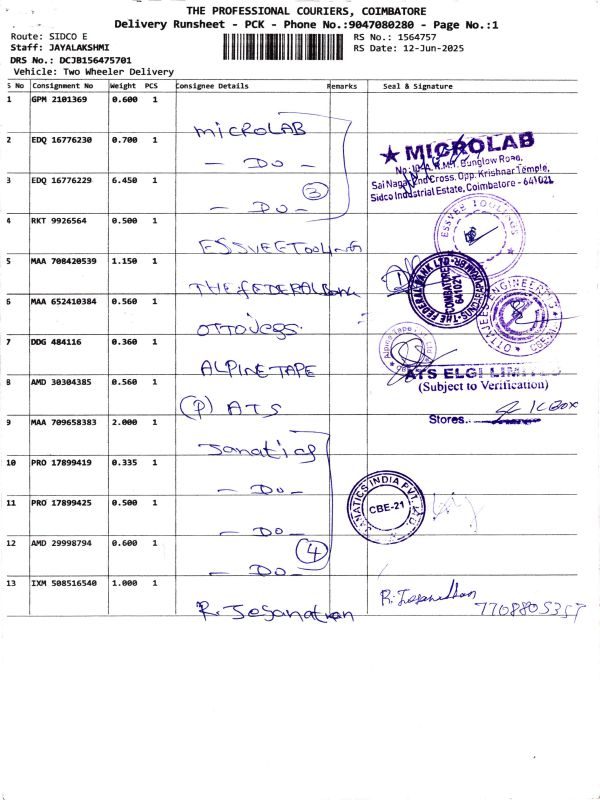 THE PROFESSIONAL COURIERS, COIMBATORE
Delivery Runsheet - PCK - Phone No.:9047080280 - Page No.:1
Route: SIDCO E
RS No.: 1564757
Staff: JAYALAKSHMI
RS Date: 12-Jun-2025
DRS No.: DCJB156475701
Vehicle: Two Wheeler Delivery
S No Consignment No Weight PCS Consignee Details Remarks Seal & Signature
1 GPM 2101369 0.600 1 MICROLAB
2 EDQ 16776230 0.700 1 - DO -
★ MICROLAB
Sai Nagar 2nd Cross, Opp. Krishnar Temple,
Sidco Industrial Estate, Coimbatore - 641021
3 EDQ 16776229 6.450 1 - DO - 3
4 RKT 9926564 0.500 1 ESSVEE Toolings
ESSVEE TOOLINGS
5 MAA 708420539 1.150 1 THE FEDERAL Bank
THE FEDERAL BANK LTD
COIMBATORE
641021
6 MAA 652410384 0.560 1
7 DDG 484116 0.360 1 ALPINE TAPE
8 AMD 30304385 0.560 1 (P) ATS
ATS ELGI LIMITED
(Subject to Verification)
Stores..
9 MAA 709658383 2.000 1 Janatics
10 PRO 17899419 0.335 1 - DO -
JANATICS INDIA PVT. LTD.
CBE-21
11 PRO 17899425 0.500 1 - DO -
12 AMD 29998794 0.600 1 - DO - 4
13 IXM 508516540 1.000 1
7708805357